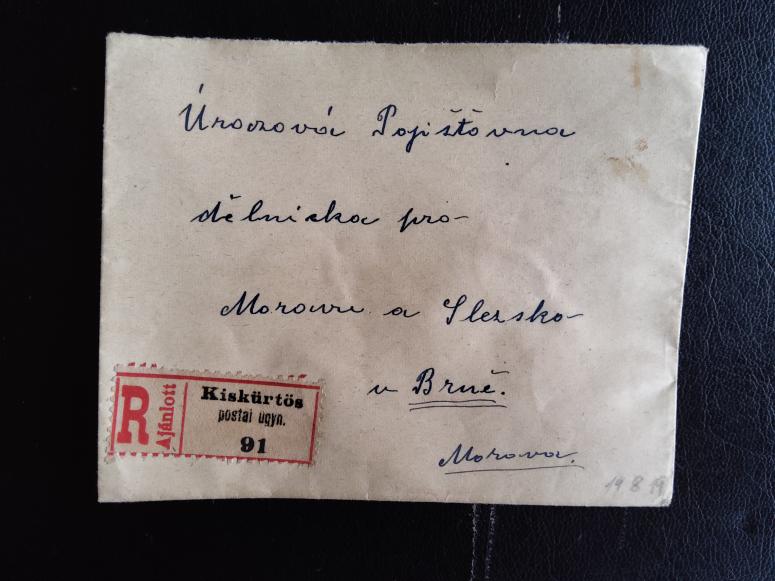 Úrazová Pojišťovna
dělnická pro
Moravu a Slezsko
v Brně.
Morava.
R
Ajánlott
Kiskürtös
postai ügyn.
91
19 8 19